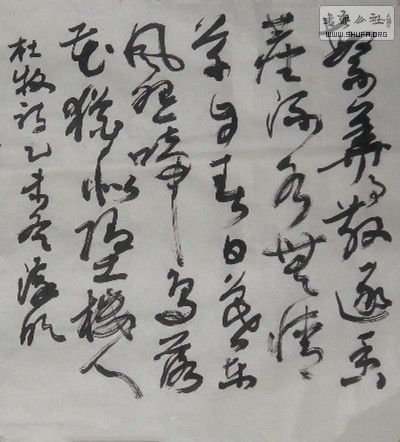 書法公社
WWW.SHUFA.ORG
繁華事散逐香
塵流水無情
草自春日暮東
風怨啼鳥落
花猶似墜樓人
杜牧詩乙未冬